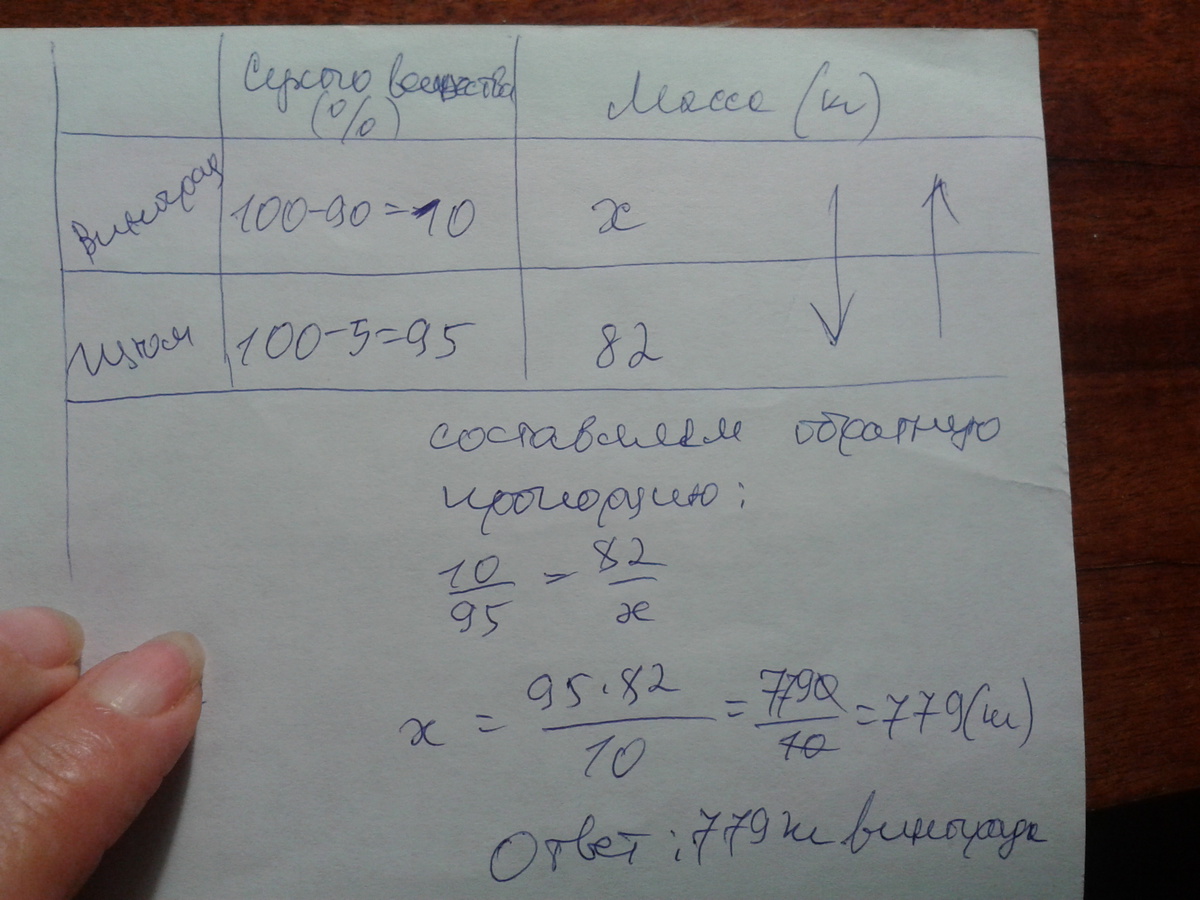 Сухого вещества
(%)
Масса (кг)
Виноград
100-90=10
x
Изюм
100-5=95
82
составляем обратную
пропорцию:
10/95 = 82/x
x = 95·82/10 = 7790/10 = 779(кг)
Ответ: 779 кг винограда